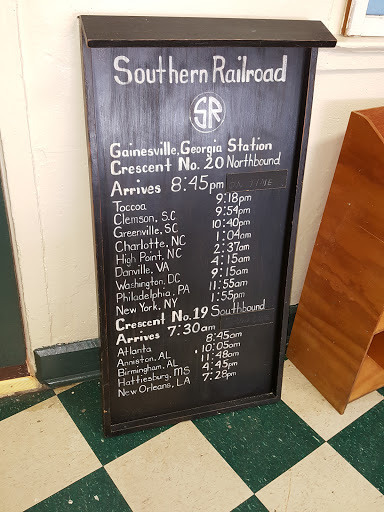 Southern Railroad
SR
Gainesville, Georgia Station
Crescent No. 20 Northbound
Arrives 8:45pm ON TIME
Toccoa 9:18pm
Clemson, S.C 9:54pm
Greenville, SC 10:40pm
Charlotte, NC 1:04am
High Point, NC 2:37am
Danville, VA 4:15am
Washington, DC 9:15am
Philadelphia, PA 11:55am
New York, NY 1:55pm
Crescent No. 19 Southbound
Arrives 7:30am
Atlanta 8:45am
Anniston, AL 10:05am
Birmingham, AL 11:48am
Hattiesburg, MS 4:45pm
New Orleans, LA 7:28pm